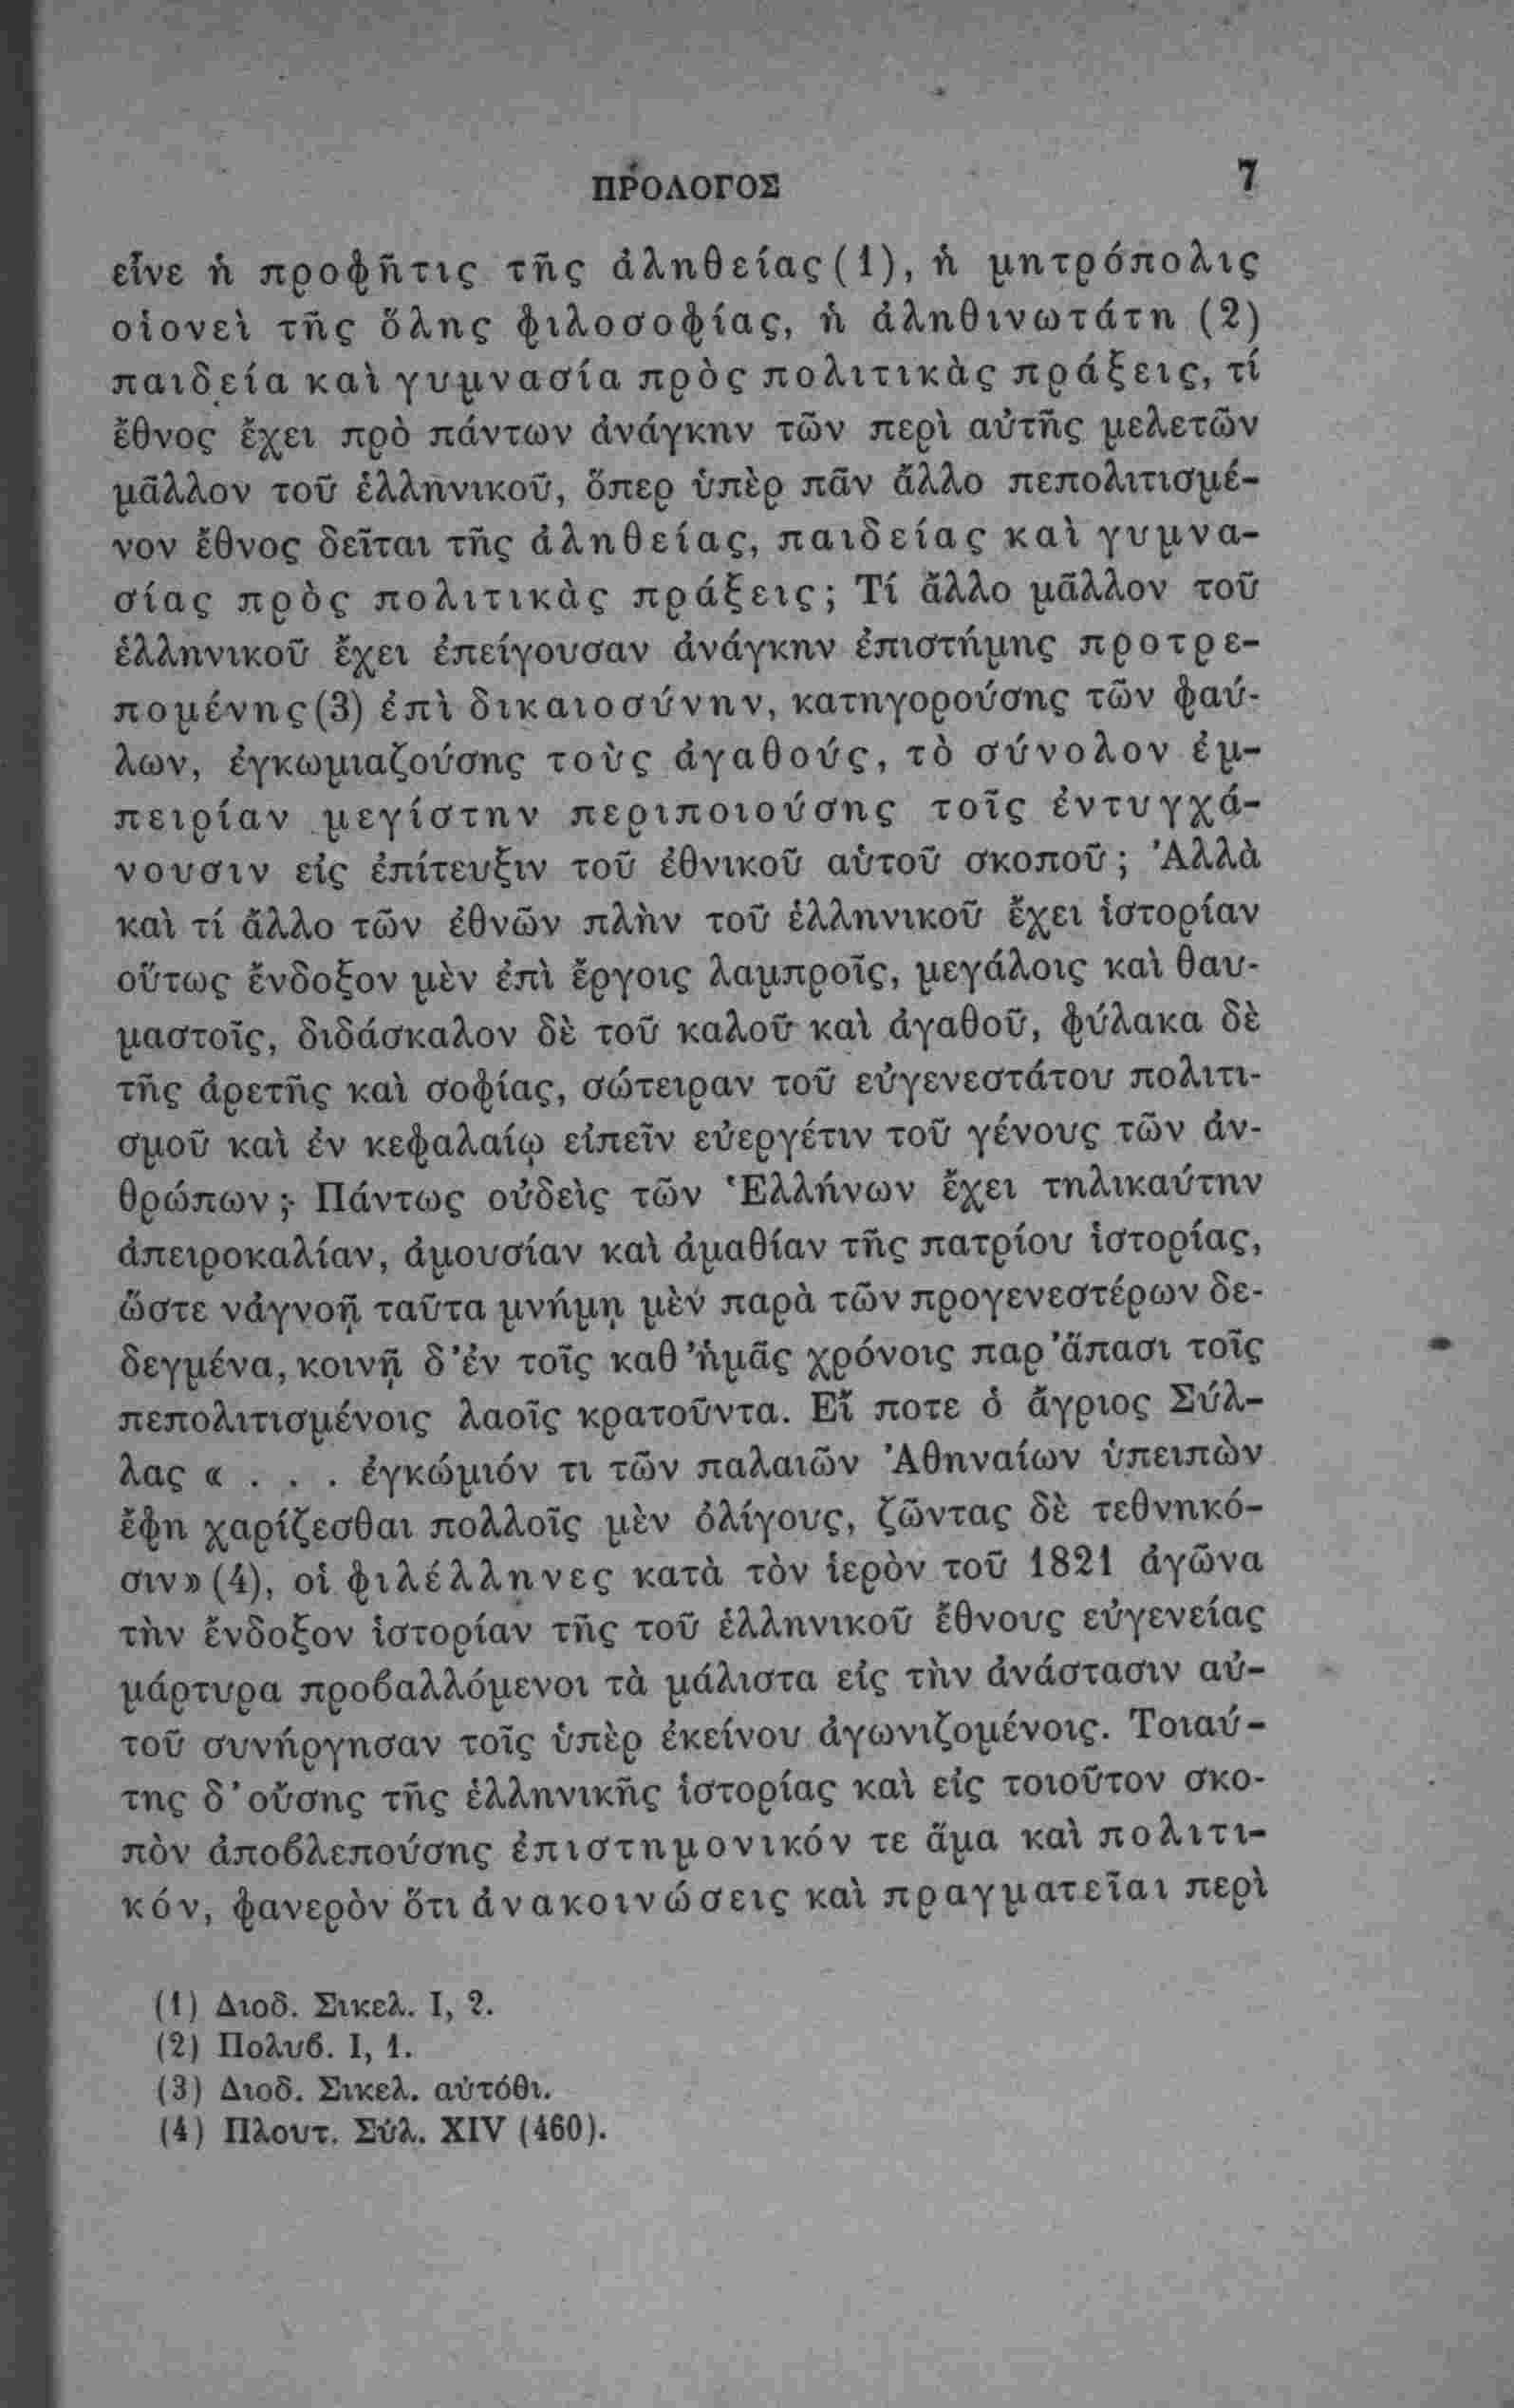 ΠΡΟΛΟΓΟΣ 7
εἶνε ἡ προφῆτις τῆς ἀληθείας(1), ἡ μητρόπολις
οἱονεὶ τῆς ὅλης φιλοσοφίας, ἡ ἀληθινωτάτη (2)
παιδεία καὶ γυμνασία πρὸς πολιτικὰς πράξεις, τί
ἔθνος ἔχει πρὸ πάντων ἀνάγκην τῶν περὶ αὐτῆς μελετῶν
μᾶλλον τοῦ ἑλληνικοῦ, ὅπερ ὑπὲρ πᾶν ἄλλο πεπολιτισμέ-
νον ἔθνος δεῖται τῆς ἀληθείας, παιδείας καὶ γυμνα-
σίας πρὸς πολιτικὰς πράξεις; Τί ἄλλο μᾶλλον τοῦ
ἑλληνικοῦ ἔχει ἐπείγουσαν ἀνάγκην ἐπιστήμης προτρε-
πομένης(3) ἐπὶ δικαιοσύνην, κατηγορούσης τῶν φαύ-
λων, ἐγκωμιαζούσης τοὺς ἀγαθούς, τὸ σύνολον ἐμ-
πειρίαν μεγίστην περιποιούσης τοῖς ἐντυγχά-
νουσιν εἰς ἐπίτευξιν τοῦ ἐθνικοῦ αὑτοῦ σκοποῦ; Ἀλλὰ
καὶ τί ἄλλο τῶν ἐθνῶν πλὴν τοῦ ἑλληνικοῦ ἔχει ἱστορίαν
οὕτως ἔνδοξον μὲν ἐπὶ ἔργοις λαμπροῖς, μεγάλοις καὶ θαυ-
μαστοῖς, διδάσκαλον δὲ τοῦ καλοῦ καὶ ἀγαθοῦ, φύλακα δὲ
τῆς ἀρετῆς καὶ σοφίας, σώτειραν τοῦ εὐγενεστάτου πολιτι-
σμοῦ καὶ ἐν κεφαλαίῳ εἰπεῖν εὐεργέτιν τοῦ γένους τῶν ἀν-
θρώπων; Πάντως οὐδεὶς τῶν Ἑλλήνων ἔχει τηλικαύτην
ἀπειροκαλίαν, ἀμουσίαν καὶ ἀμαθίαν τῆς πατρίου ἱστορίας,
ὥστε νἀγνοῇ ταῦτα μνήμῃ μὲν παρὰ τῶν προγενεστέρων δε-
δεγμένα, κοινῇ δ'ἐν τοῖς καθ'ἡμᾶς χρόνοις παρ'ἅπασι τοῖς
πεπολιτισμένοις λαοῖς κρατοῦντα. Εἴ ποτε ὁ ἄγριος Σύλ-
λας « . . . ἐγκώμιόν τι τῶν παλαιῶν Ἀθηναίων ὑπειπὼν
ἔφη χαρίζεσθαι πολλοῖς μὲν ὀλίγους, ζῶντας δὲ τεθνηκό-
σιν»(4), οἱ φιλέλληνες κατὰ τὸν ἱερὸν τοῦ 1821 ἀγῶνα
τὴν ἔνδοξον ἱστορίαν τῆς τοῦ ἑλληνικοῦ ἔθνους εὐγενείας
μάρτυρα προβαλλόμενοι τὰ μάλιστα εἰς τὴν ἀνάστασιν αὐ-
τοῦ συνήργησαν τοῖς ὑπὲρ ἐκείνου ἀγωνιζομένοις. Τοιαύ-
της δ'οὔσης τῆς ἑλληνικῆς ἱστορίας καὶ εἰς τοιοῦτον σκο-
πὸν ἀποβλεπούσης ἐπιστημονικόν τε ἅμα καὶ πολιτι-
κόν, φανερὸν ὅτι ἀνακοινώσεις καὶ πραγματεῖαι περὶ
(1) Διοδ. Σικελ. I, 2.
(2) Πολυβ. I, 1.
(3) Διοδ. Σικελ. αὐτόθι.
(4) Πλουτ. Σύλ. XIV (460).